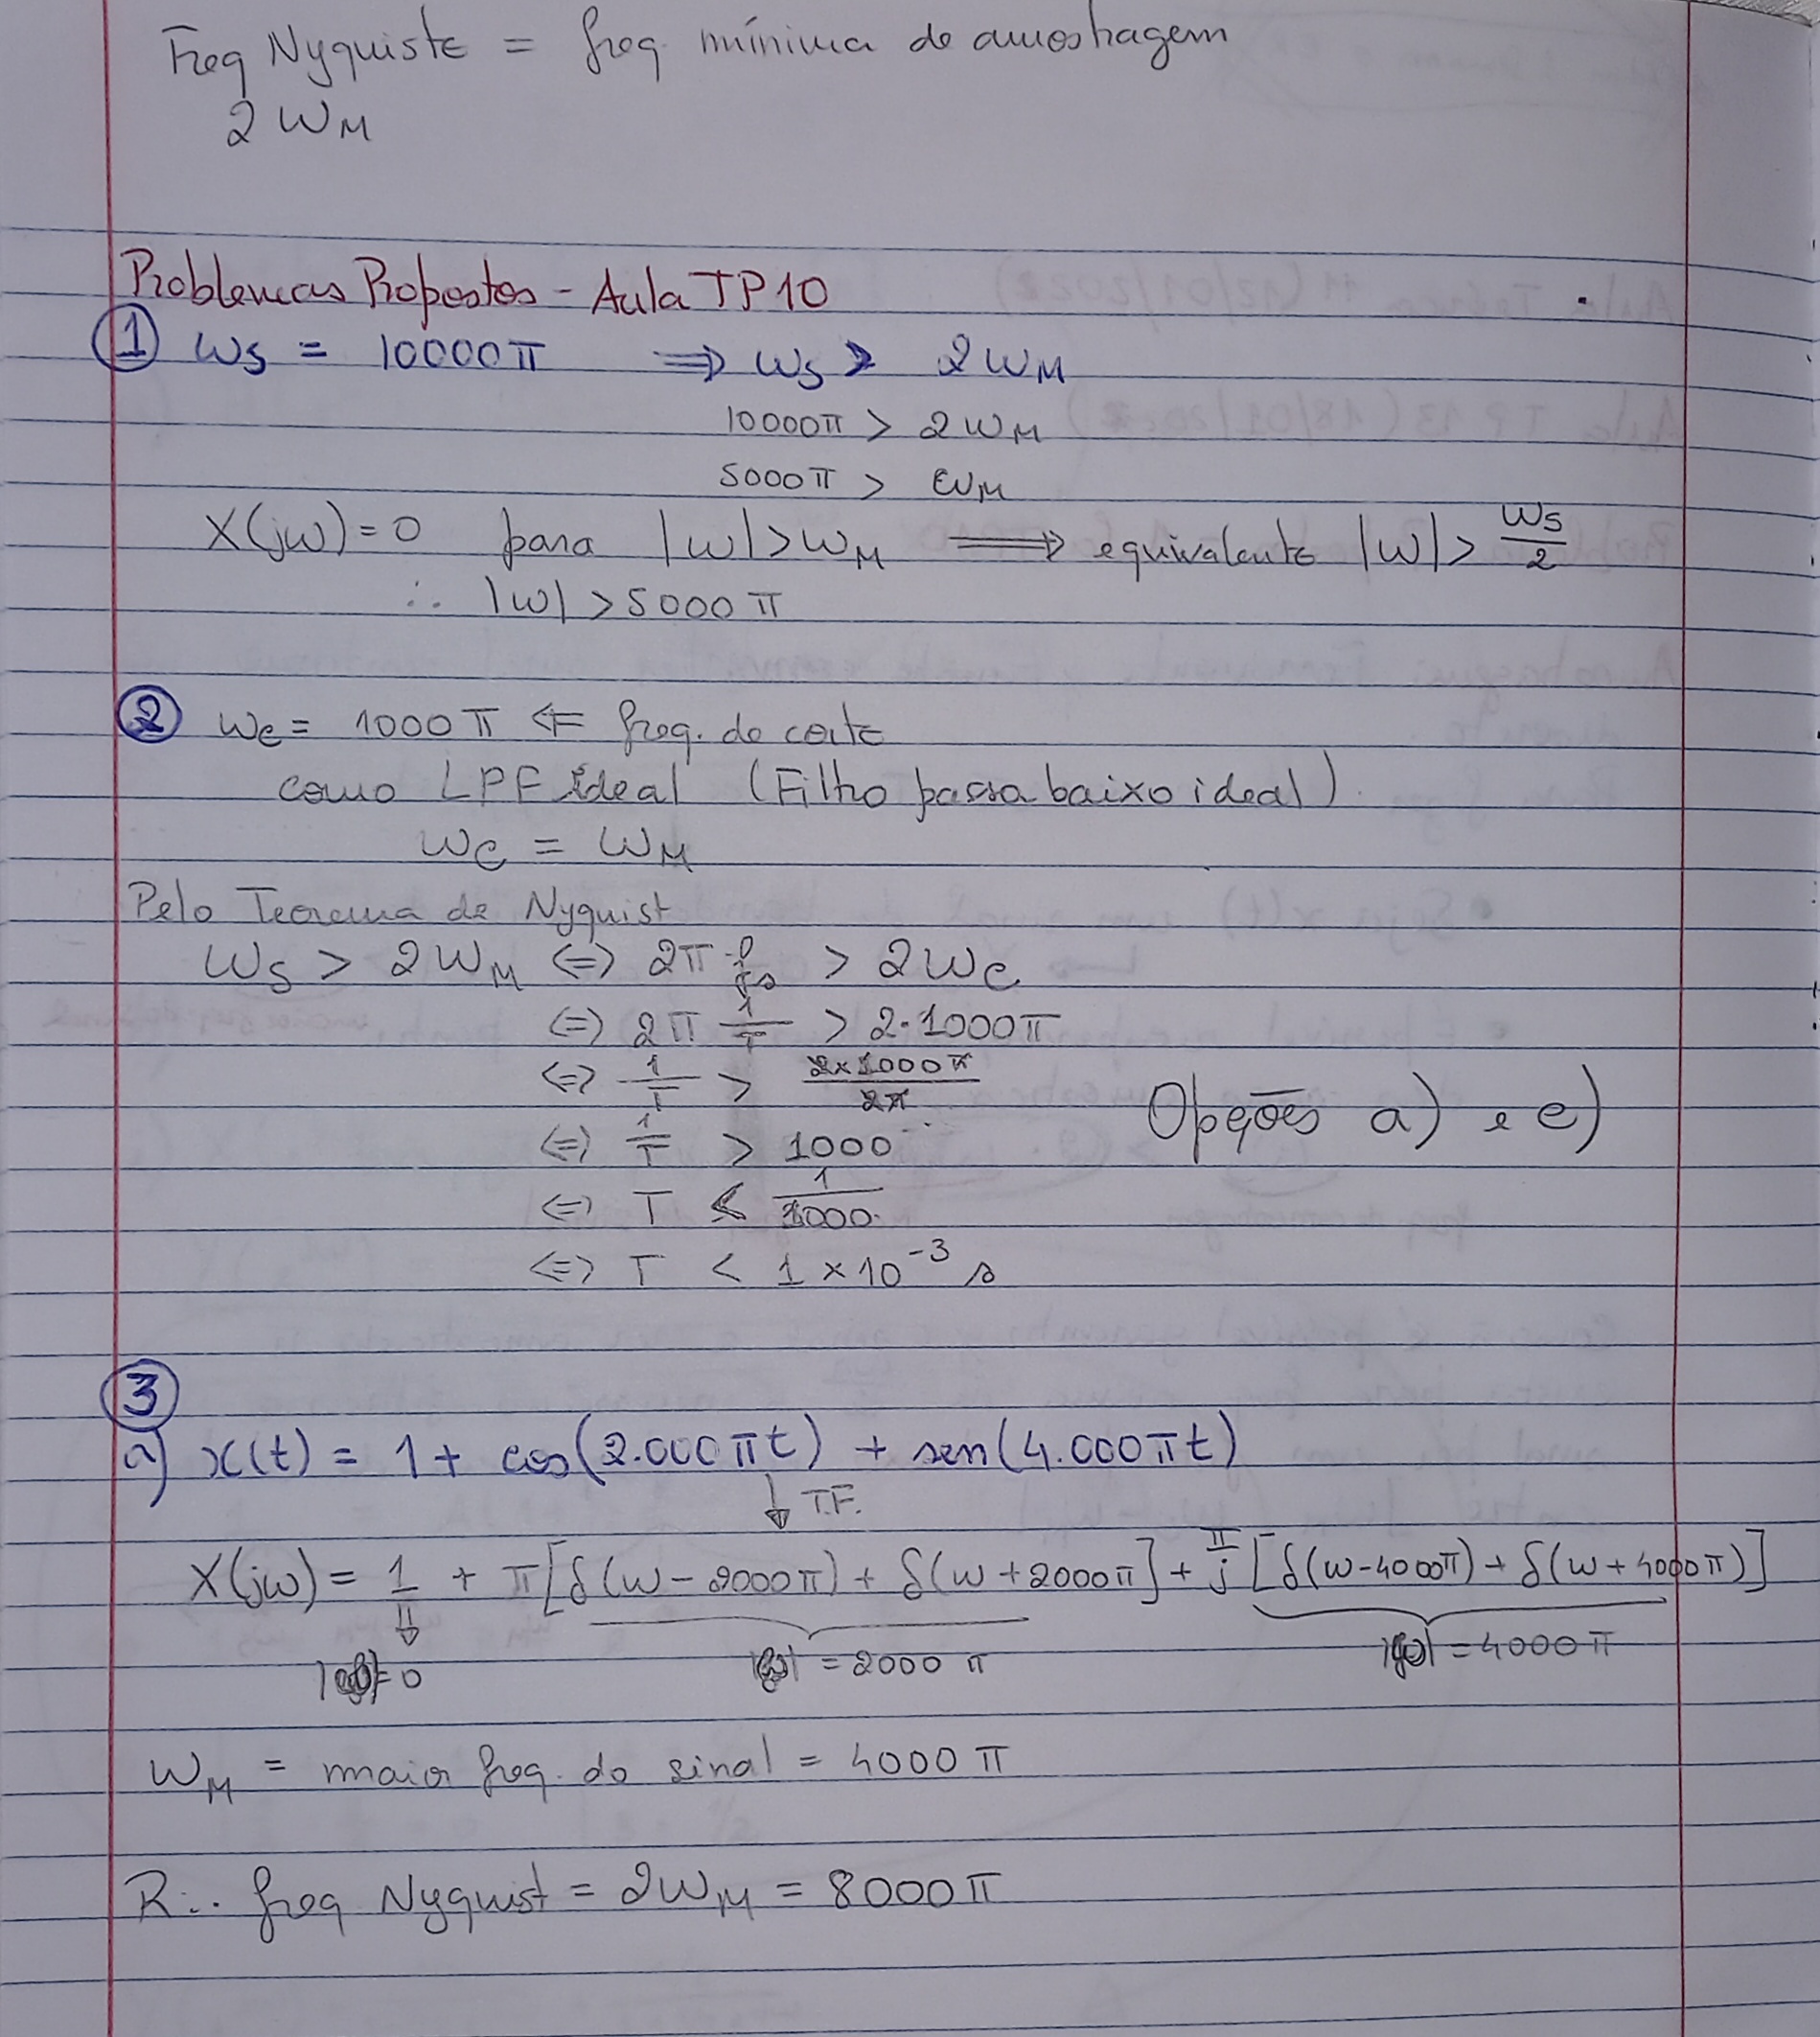 Freq Nyquiste = freq. mínima de amostragem
2 WM
Problemas Propostos - Aula TP10
① ws = 10000π ⇒ ws > 2 WM
10000π > 2 WM
5000π > WM
X(jw) = 0 para |w| > WM ⟹ equivalente |w| > ws/2
∴ |w| > 5000π
② wc = 1000π ⇐ freq. de corte
como LPF ideal (Filtro passa baixo ideal)
wc = WM
Pelo Teorema de Nyquist
ws > 2WM ⇔ 2π·fs > 2wc
⇔ 2π 1/T > 2·1000π
⇔ 1/T > 2×1000π/2π
⇔ 1/T > 1000 Opções a) e c)
⇔ T < 1/1000
⇔ T < 1 × 10⁻³ s
③
a) x(t) = 1 + cos(2.000πt) + sen(4.000πt)
↓ T.F.
X(jw) = 1 + π[δ(w-2000π) + δ(w+2000π] + π/j [δ(w-4000π) + δ(w+4000π)]
|w|=0 |w| = 2000π |w| = 4000π
WM = maior freq. do sinal = 4000π
R∴ freq Nyquist = 2WM = 8000π